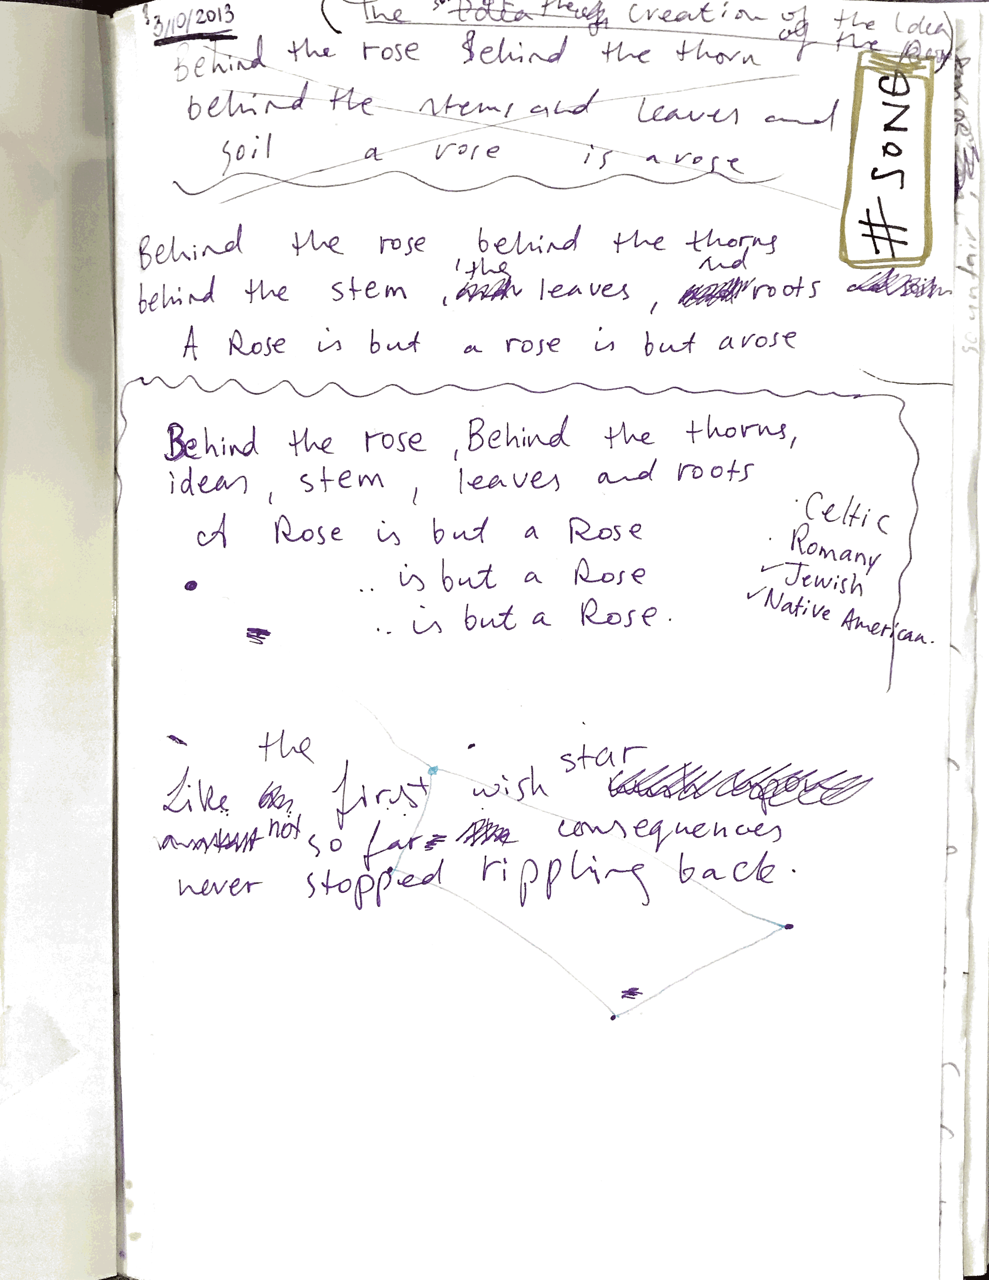 3/10/2013
(The creation of the Idea)
of the
behind the rose Behind the thorn
behind the stems and leaves and
soil a rose is a rose
# SONG
Behind the rose behind the thorns
behind the stem, the leaves, and roots
A Rose is but a rose is but a rose
Behind the rose, Behind the thorns,
ideas, stem, leaves and roots
A Rose is but a Rose
.. is but a Rose
.. is but a Rose.
Celtic
Romany
Jewish
Native American.
Like the first wish star
not so far consequences
never stopped rippling back.